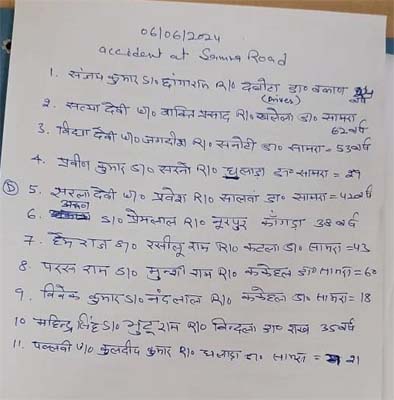 06/06/2024
accident at Samra Road
1. संजय कुमार S/o छांगाराम R/o दबोटा डा० बकाण 24 वर्ष
(Driver)
2. सत्या देवी W/o प्रसाद R/o डा० सामरा 62 वर्ष
3. विद्या देवी W/o जगदीश R/o सनोटी डा० सामरा = 53 वर्ष
4. प्रवीण कुमार S/o R/o घलाडा डा० सामरा = 27
D 5. सरला देवी W/o प्रवेश R/o सालवां डा० सामरा = 42 वर्ष
6. S/o प्रेमलाल R/o नूरपुर काँगड़ा 38 वर्ष
7. हेम राज S/o रसीलू राम R/o कटला डा० सामरा = 43
8. परस राम S/o मुन्शी राम R/o कचेहल डा० सामरा = 60
9. विवेक कुमार S/o नंद लाल R/o कचेहल डा० सामरा = 18
10. महिन्द्र सिंह S/o राम R/o बिन्दला डा० राख 35 वर्ष
11. पल्लवी W/o कुलदीप कुमार R/o घलाडा डा० सामरा = 21